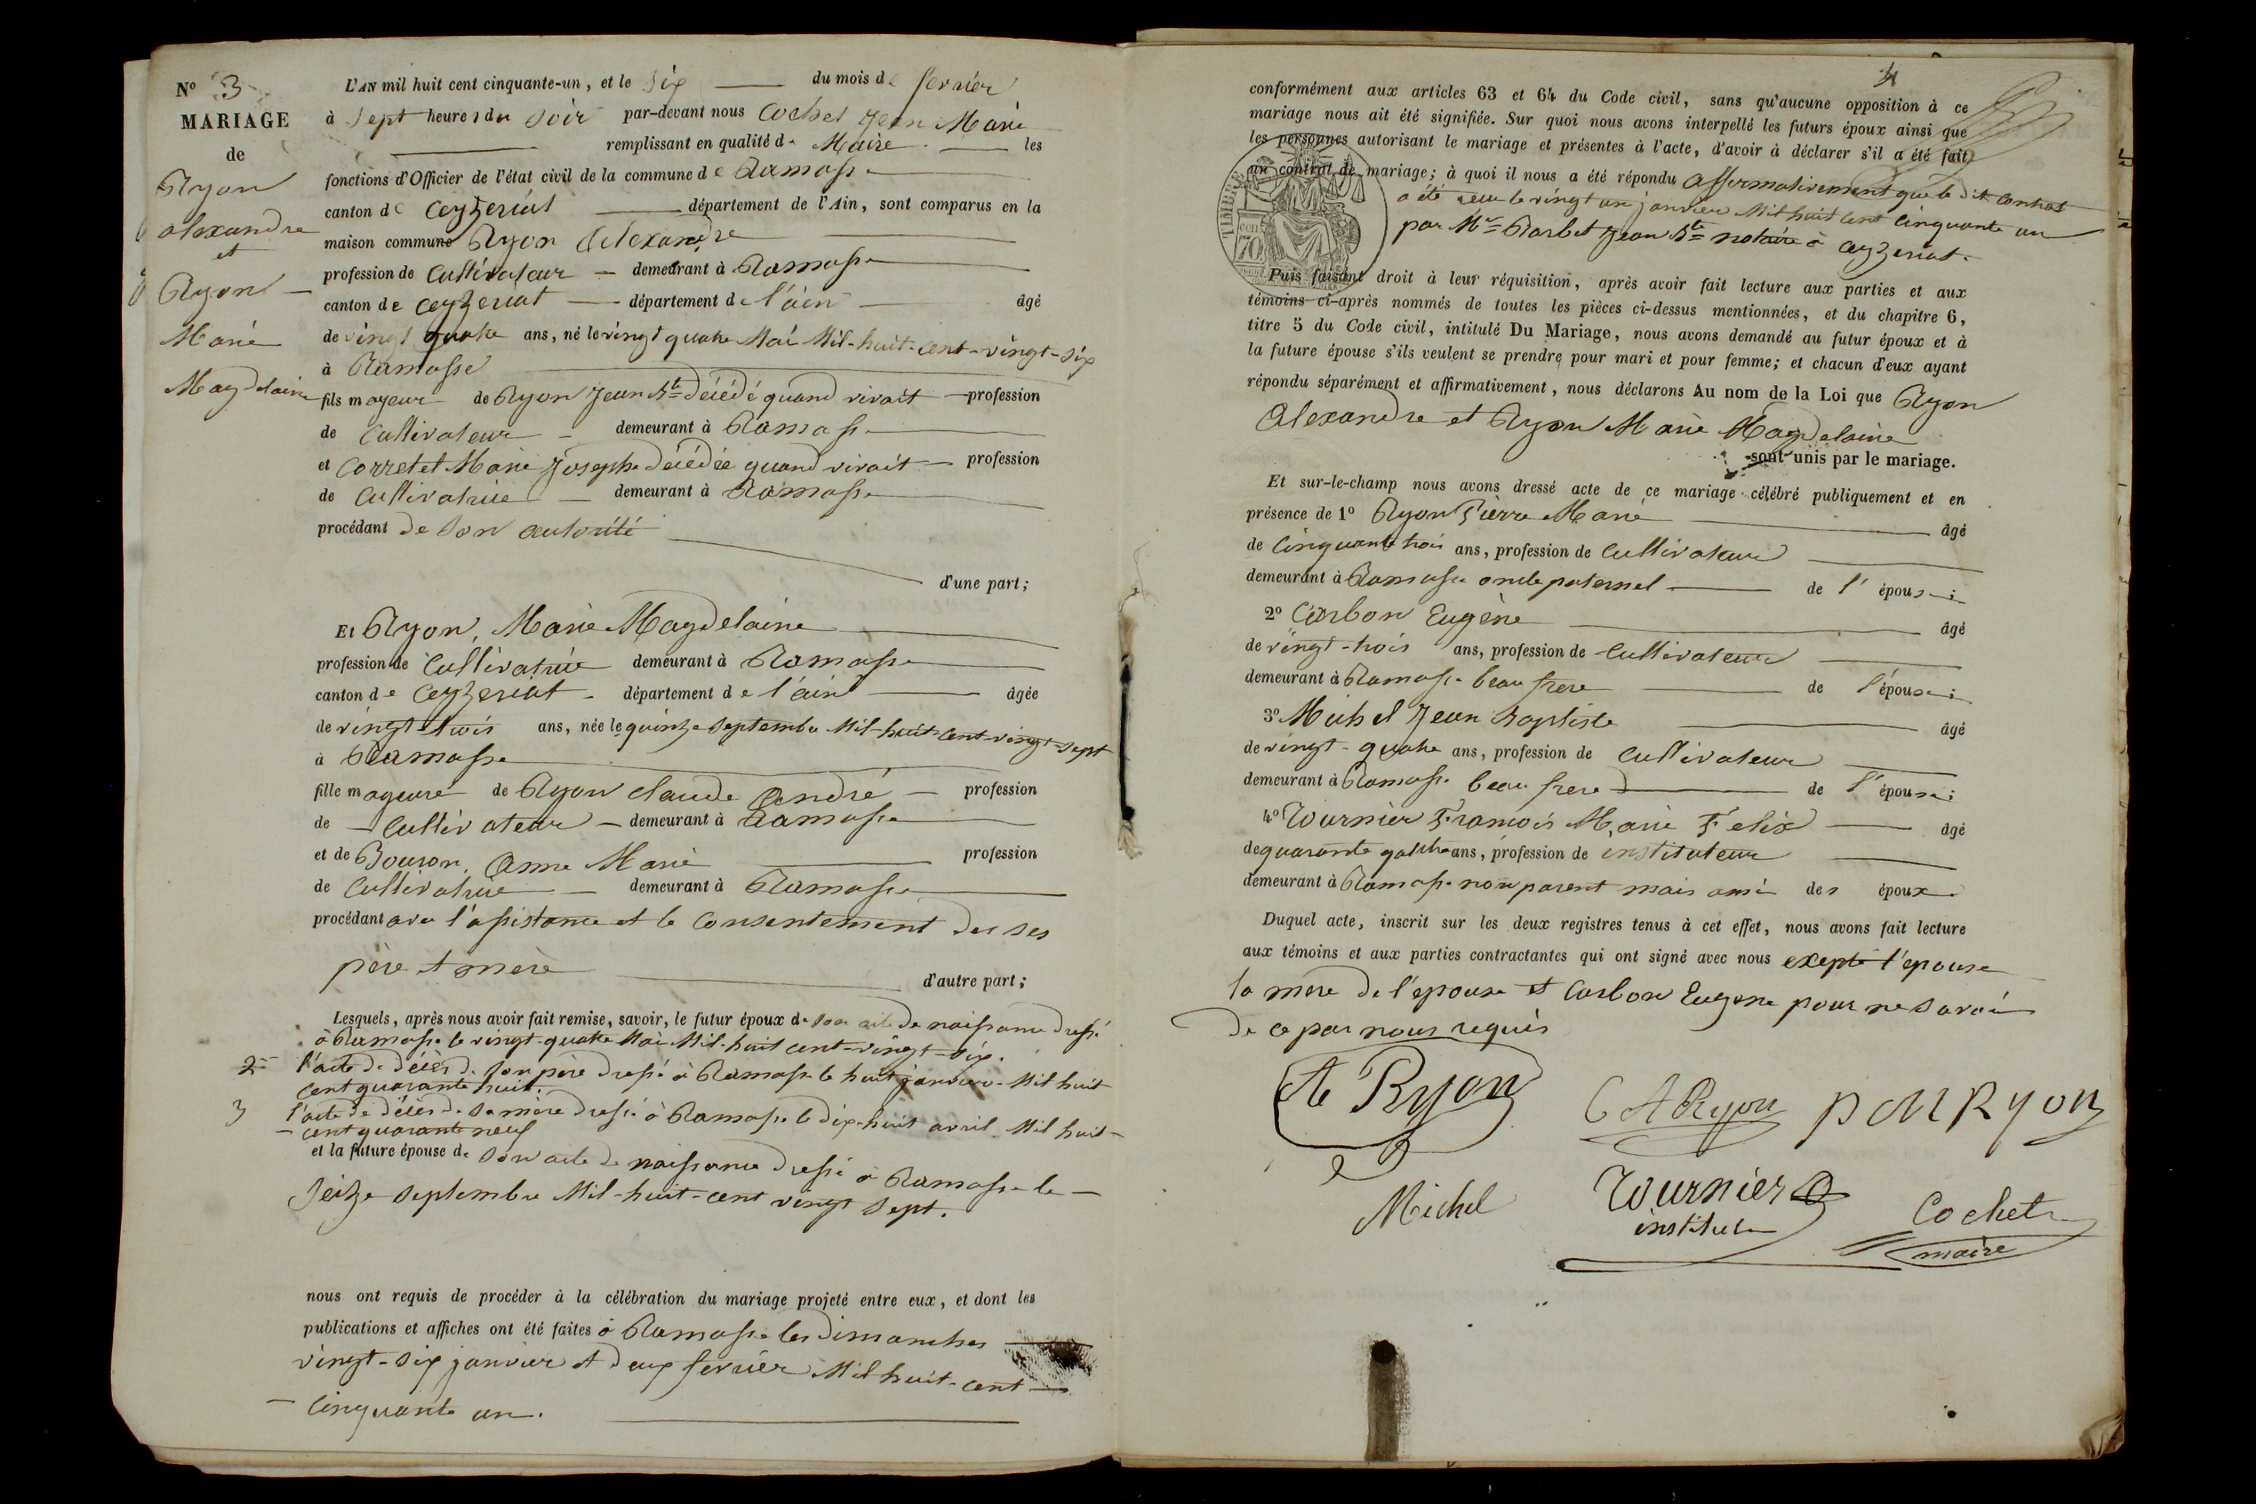 N° 3
MARIAGE
de
Ryon
alexandre
et
Ryon
Marie
Magdelaine
L'AN mil huit cent cinquante-un, et le six du mois de fevrier
à sept heures du soir par-devant nous Cochet Jean Marie
remplissant en qualité de Maire les
fonctions d'Officier de l'état civil de la commune de Ramasse
canton de Ceyzeriat département de l'Ain, sont comparus en la
maison commune Ryon Alexandre
profession de Cultivateur demeurant à Ramasse
canton de Ceyzeriat département de l'ain âgé
de vingt quatre ans, né le vingt quatre Mai Mil-huit-cent-vingt-six
à Ramasse
fils majeur de Ryon Jean Bte décédé quand vivait profession
de Cultivateur demeurant à Ramasse
et Corretet Marie Josephe décédée quand vivait profession
de Cultivatrice demeurant à Ramasse
procédant de son autorité
d'une part;
Et Ryon, Marie Magdelaine
profession de Cultivatrice demeurant à Ramasse
canton de Ceyzeriat département de l'ain âgée
de vingt trois ans, née le quinze septembre Mil-huit-cent-vingt-sept
à Ramasse
fille majeure de Ryon claude André profession
de Cultivateur demeurant à Ramasse
et de Bouron, Anne Marie profession
de Cultivatrice demeurant à Ramasse
procédant avec l'assistance et le Consentement des ses
père et mère
d'autre part;
Lesquels, après nous avoir fait remise, savoir, le futur époux de son acte de naissance dressé
à Ramasse le vingt-quatre Mai Mil-huit cent-vingt-six.
2° l'acte de décès de son père dressé à Ramasse le huit janvier Mil huit
cent quarante huit.
3 l'acte de décès de sa mère dressé à Ramasse le dix-huit avril Mil huit-
cent quarante neuf
et la future épouse de son acte de naissance dressé à Ramasse le
seize septembre Mil-huit-cent vingt sept.
nous ont requis de procéder à la célébration du mariage projeté entre eux, et dont les
publications et affiches ont été faites à Ramasse les dimanches
vingt-six janvier et deux fevrier Mil huit-cent
Cinquante un.
4
conformément aux articles 63 et 64 du Code civil, sans qu'aucune opposition à ce
mariage nous ait été signifiée. Sur quoi nous avons interpellé les futurs époux ainsi que
les personnes autorisant le mariage et présentes à l'acte, d'avoir à déclarer s'il a été fait
un contrat de mariage; à quoi il nous a été répondu affirmativement que le dit contrat
a été reçu le vingt un janvier Mil huit cent Cinquante un
par Mr Barbet Jean Bte notaire à Ceyzeriat.
TIMBRE
70
Puis faisant droit à leur réquisition, après avoir fait lecture aux parties et aux
témoins ci-après nommés de toutes les pièces ci-dessus mentionnées, et du chapitre 6,
titre 5 du Code civil, intitulé Du Mariage, nous avons demandé au futur époux et à
la future épouse s'ils veulent se prendre pour mari et pour femme; et chacun d'eux ayant
répondu séparément et affirmativement, nous déclarons Au nom de la Loi que Ryon
Alexandre et Ryon Marie Magdelaine
sont unis par le mariage.
Et sur-le-champ nous avons dressé acte de ce mariage célébré publiquement et en
présence de 1° Ryon Pierre Marie âgé
de Cinquante trois ans, profession de Cultivateur
demeurant à Ramasse oncle paternel de l'épouse;
2° Carbon Eugène âgé
de vingt-trois ans, profession de Cultivateur
demeurant à Ramasse beau frere de l'épouse;
3° Michel Jean Baptiste âgé
de vingt-quatre ans, profession de Cultivateur
demeurant à Ramasse beau frere de l'épouse;
4° Tournier François Marie Felix âgé
de quarante quatre ans, profession de instituteur
demeurant à Ramasse non parent mais ami des époux.
Duquel acte, inscrit sur les deux registres tenus à cet effet, nous avons fait lecture
aux témoins et aux parties contractantes qui ont signé avec nous exepté l'epouse
la mere de l'epouse et Carbon Eugene pour ne savoir
de ce par nous requis
A Ryon
C A Ryon
P M Ryon
Michel
Tournier
institut
Cochet
maire